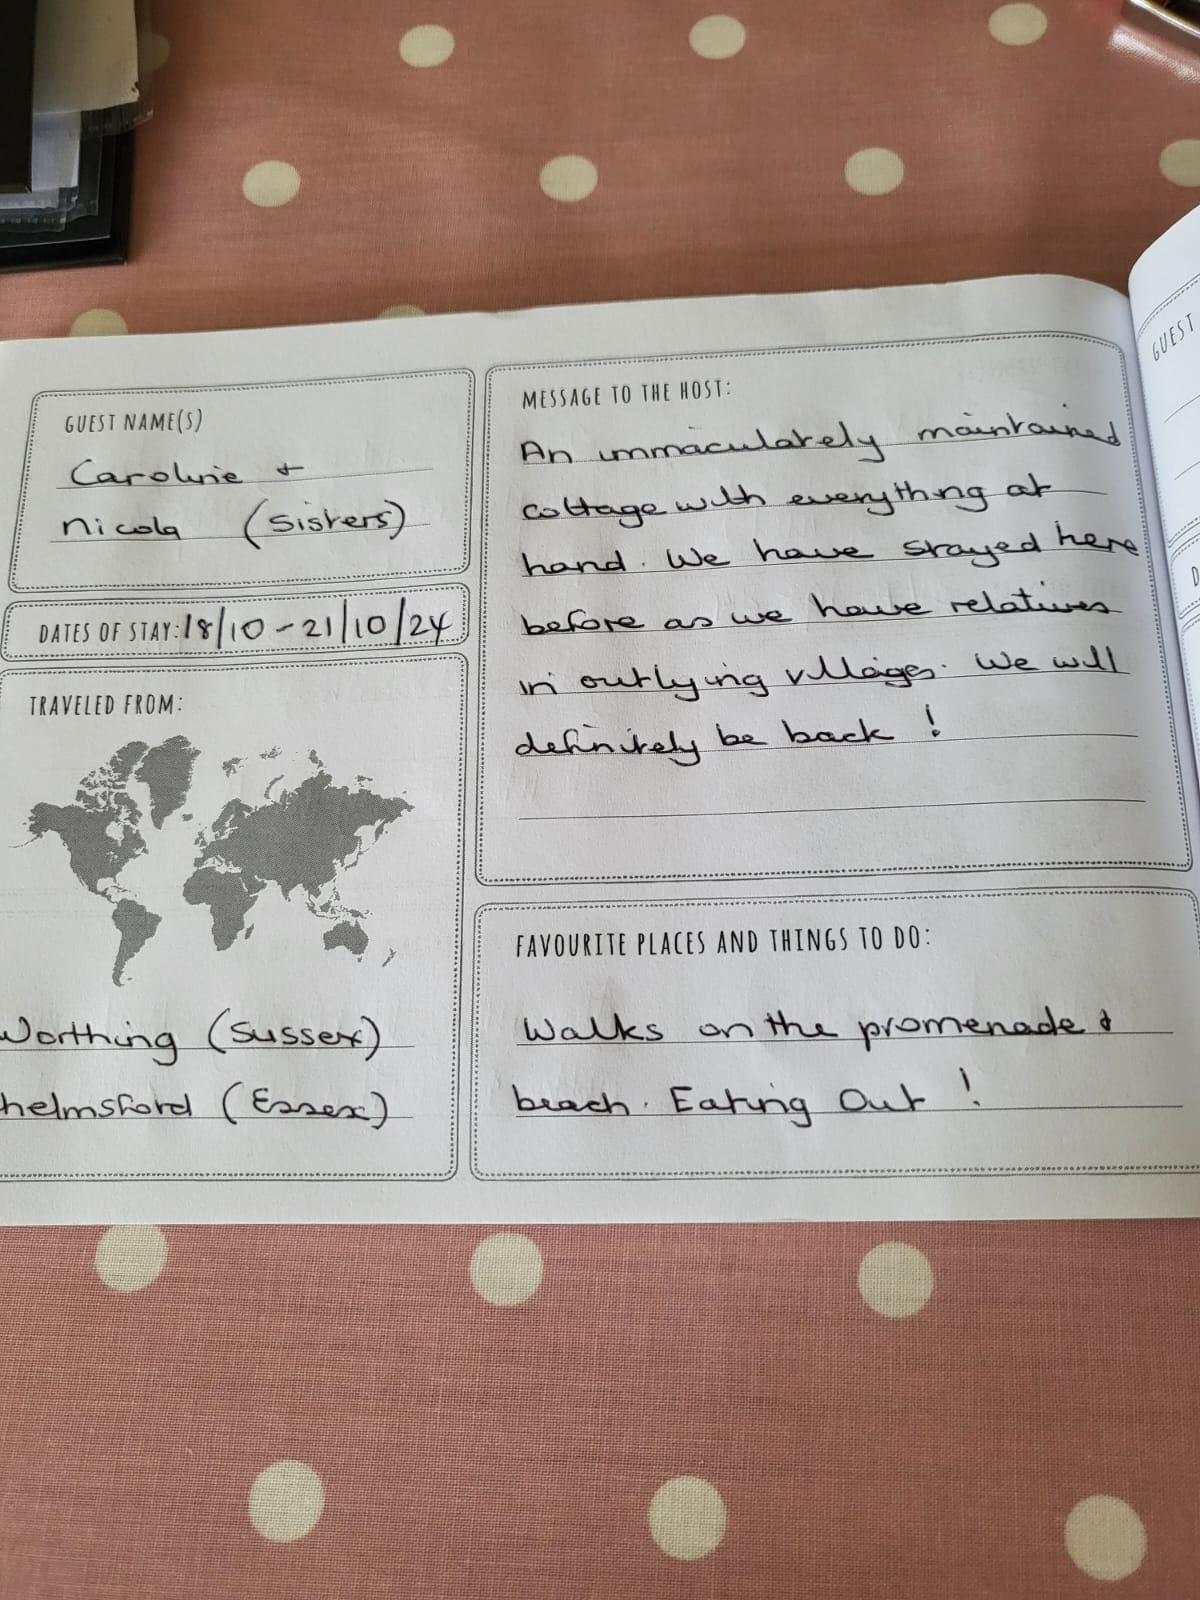 GUEST NAME(S)
Caroline +
Nicola (Sisters)
DATES OF STAY: 18/10 - 21/10/24
TRAVELED FROM:
Worthing (Sussex)
helmsford (Essex)
MESSAGE TO THE HOST:
An immaculately maintained
cottage with everything at
hand. We have stayed here
before as we have relatives
in outlying villages. We will
definitely be back !
FAVOURITE PLACES AND THINGS TO DO:
Walks on the promenade &
beach. Eating Out !
GUEST
D